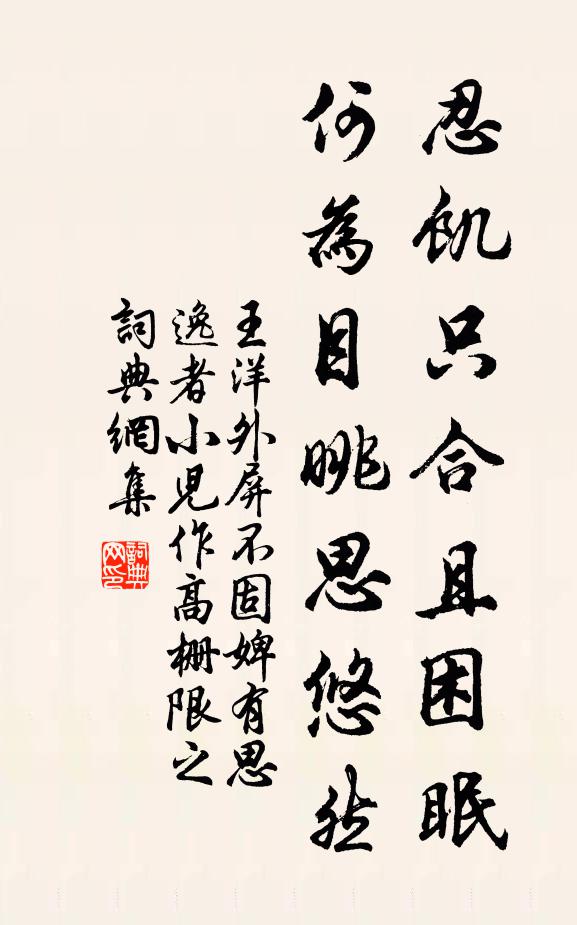 忍飢只合且困眠
何為目眺思悠然
王洋外屏不固婢有思
逸者小児作高柵限之
詞典網集
詞典网印